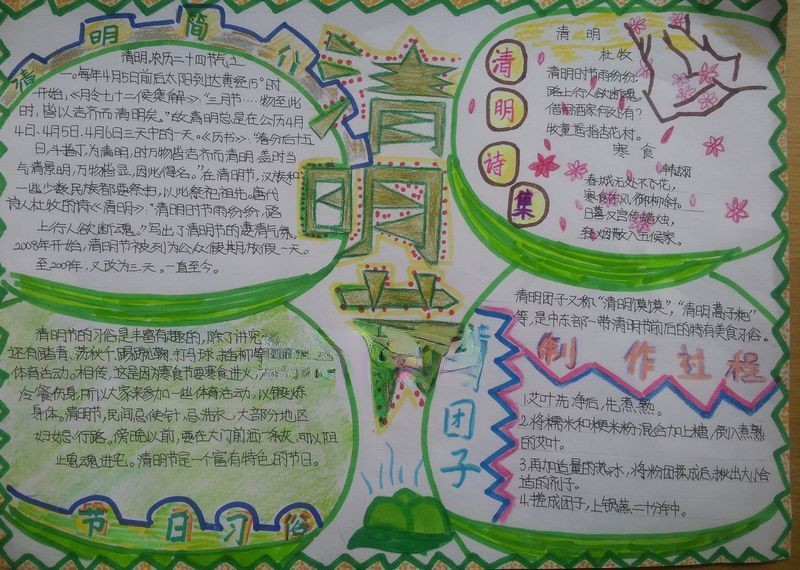 清明节
清明简介
清明,农历二十四节气之
一。每年4月5日前后太阳到达黄经15°时
开始,《月令七十二候集解》:“三月节……物至此
时,皆以洁齐而清明矣。”故清明总是在公历4月
4日、4月5日、4月6日三天中的一天。《历书》:“春分后十五
日,斗指丁,为清明,时万物皆洁齐而清明,盖时当
气清景明,万物皆显,因此得名。”在清明节,汉族和
一些少数民族都要祭扫,以此祭祀祖先。唐代
诗人杜牧的诗《清明》:“清明时节雨纷纷,路
上行人欲断魂。”写出了清明节的凄清气氛。
2008年开始,清明节被列为公众假期放假一天。
至2009年,又改为三天。一直至今。
清明诗集
清明
杜牧
清明时节雨纷纷,
路上行人欲断魂。
借问酒家何处有?
牧童遥指杏花村。
寒食
韩翃
春城无处不飞花,
寒食东风御柳斜。
日暮汉宫传蜡烛,
轻烟散入五侯家。
清明节的习俗是丰富有趣的,除了讲究
还有踏青、荡秋千、踢蹴鞠、打马球、插柳等
体育活动。相传,这是因为寒食节要寒食进火,
冷餐伤身,所以大家来参加一些体育活动,以锻炼
身体。清明节,民间忌使针,忌洗衣,大部分地区
妇女忌行路。傍晚以前,要在大门前洒一条灰,可以阻
止鬼魂进宅。清明节是一个富有特色的节日。
节日习俗
青团子
清明团子又称“清明馍馍”,“清明蒿子粑”
等,是中东部一带清明节前后的特有美食习俗。
制作过程
1.艾叶洗净后,先煮熟。
2.将糯米和粳米粉混合加上糖,倒入煮熟
的艾叶。
3.再加适量的热水,将粉团揉成后,揪出大小合
适的剂子。
4.搓成团子,上锅蒸二十分钟。